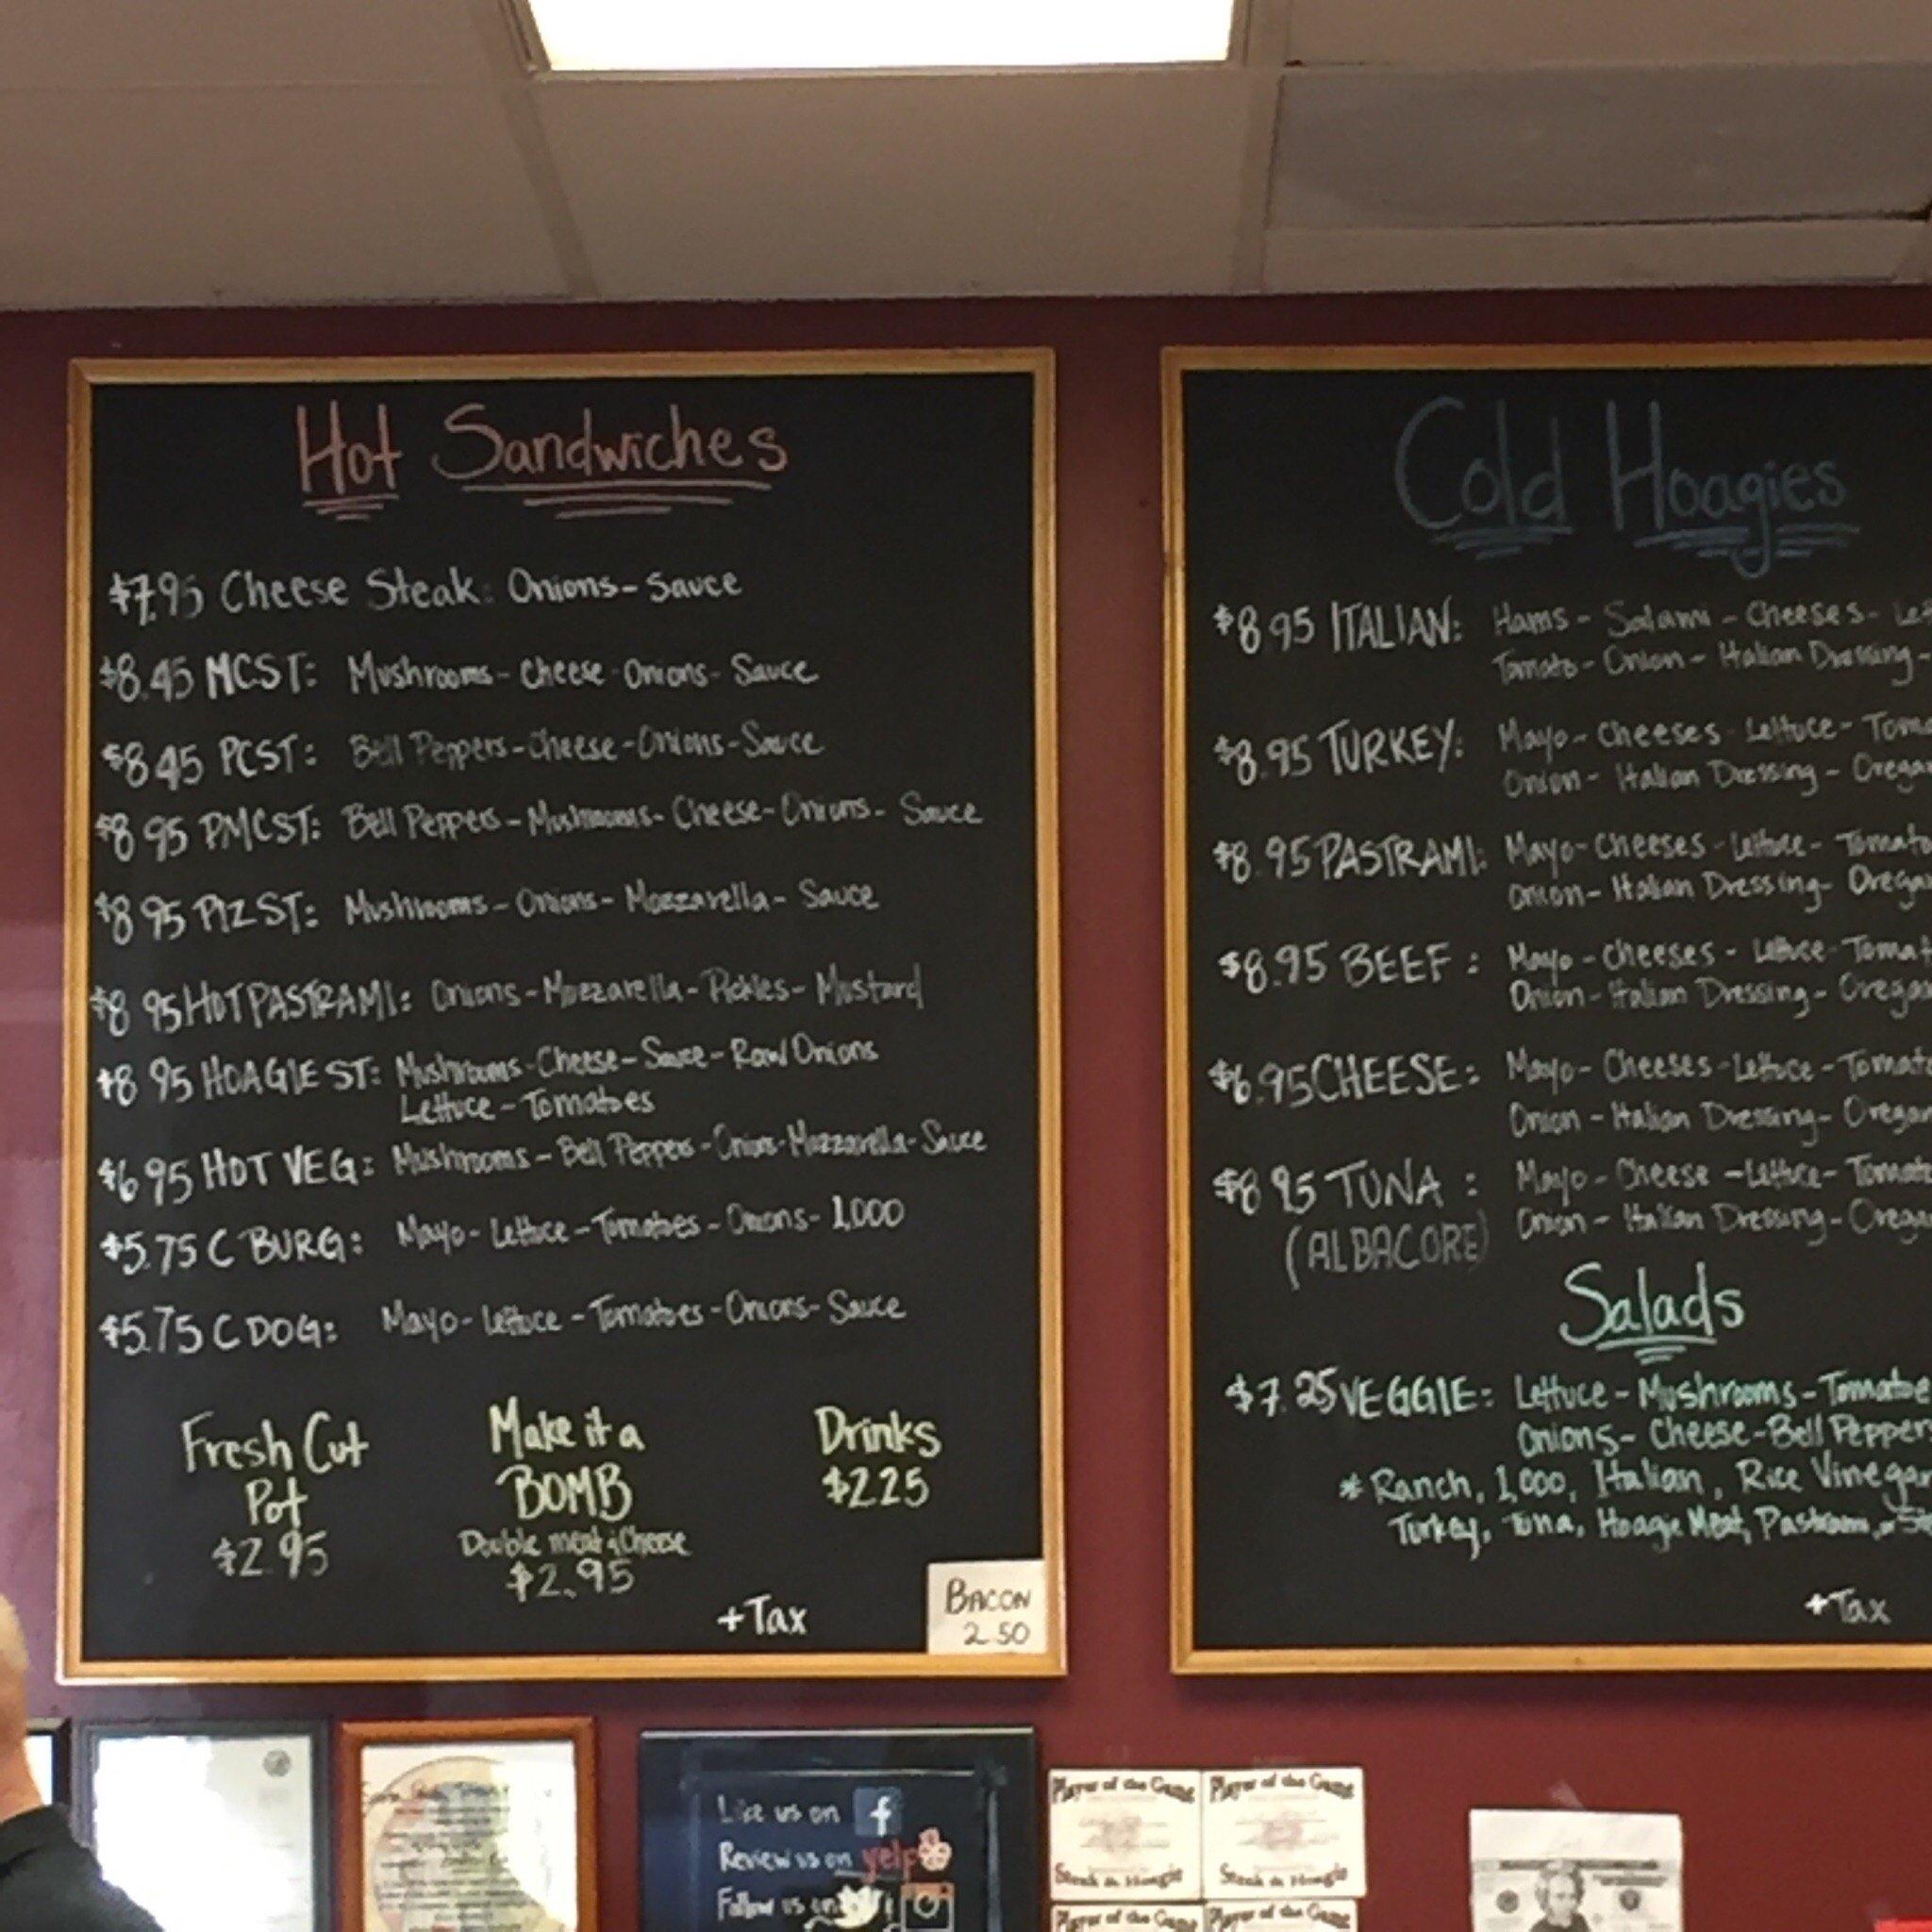 Hot Sandwiches
$7.95 Cheese Steak: Onions-Sauce
$8.45 MCST: Mushrooms-Cheese-Onions-Sauce
$8.45 PCST: Bell Peppers-Cheese-Onions-Sauce
$8.95 PMCST: Bell Peppers-Mushrooms-Cheese-Onions-Sauce
$8.95 PIZST: Mushrooms-Onions-Mozzarella-Sauce
$8.95 HOT PASTRAMI: Onions-Mozzarella-Pickles-Mustard
$8.95 HOAGIE ST: Mushrooms-Cheese-Sauce-Raw Onions
Lettuce-Tomatoes
$6.95 HOT VEG: Mushrooms-Bell Peppers-Onions-Mozzarella-Sauce
$5.75 C BURG: Mayo-Lettuce-Tomatoes-Onions-1,000
$5.75 C DOG: Mayo-Lettuce-Tomatoes-Onions-Sauce
Fresh Cut
Pot
$2.95
Make it a
BOMB
Double meat & Cheese
$2.95
Drinks
$2.25
+Tax
BACON
2.50
Cold Hoagies
$8.95 ITALIAN: Hams-Salami-Cheeses-
Tomato-Onion-Italian Dressing-
$8.95 TURKEY: Mayo-Cheeses-Lettuce-
Onion-Italian Dressing-
$8.95 PASTRAMI: Mayo-Cheeses-Lettuce-Tomato
Onion-Italian Dressing-
$8.95 BEEF: Mayo-Cheeses-Lettuce-
Onion-Italian Dressing-
$6.95 CHEESE: Mayo-Cheeses-Lettuce-Tomato
Onion-Italian Dressing-
$8.95 TUNA: Mayo-Cheese-Lettuce-Tomato
(ALBACORE) Onion-Italian Dressing-
Salads
$7.25 VEGGIE: Lettuce-Mushrooms-Tomatoe
Onions-Cheese-Bell Peppers
* Ranch, 1,000, Italian, Rice Vinegar
Turkey, Tuna, Hoagie Meat, Pastrami,
+Tax
Like us on f
Review us on yelp
Follow us on
Player of the Game
Steak n Hoagie
Player of the Game
Steak n Hoagie
Player of the Game
Player of the Game